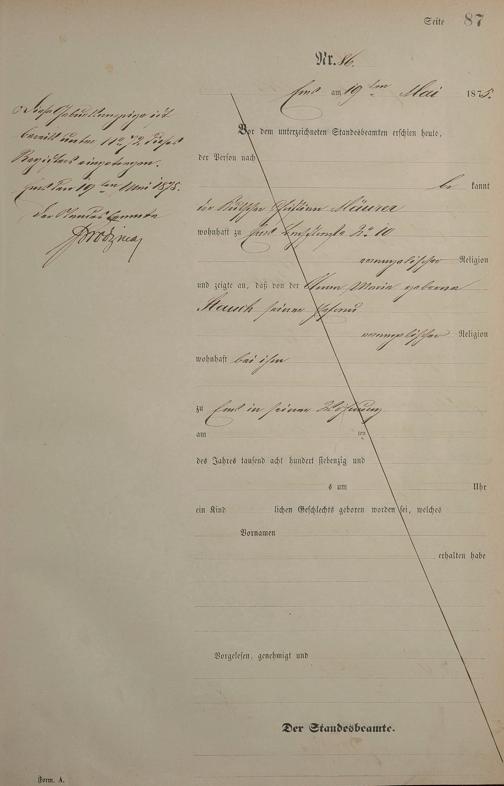 Seite 87
Nr. 86.
Ems am 19 ten Mai 1875.
Vor dem unterzeichneten Standesbeamten erschien heute,
der Person nach
be kannt
der Philipp Häuser
wohnhaft zu Ems No 10
evangelischer Religion
und zeigte an, daß von der Anna Maria geborene
Rausch seiner Ehefrau
evangelischer Religion
wohnhaft bei ihm
zu Ems in seiner Wohnung
am ten
des Jahres tausend acht hundert siebenzig und
s um Uhr
ein Kind lichen Geschlechts geboren worden sei, welches
Vornamen
erhalten habe
Vorgelesen, genehmigt und
Der Standesbeamte.
Form. A.
Diese Geburtsanzeige ist
bereits unter No 72 dieses
Registers eingetragen.
Ems den 19 ten Mai 1875.
Der Standesbeamte